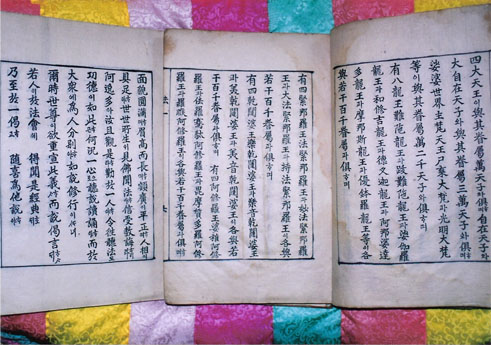 四大天王이與其眷屬萬天子와俱하며自在天子와
大自在天子이與其眷屬三萬天子와俱하며
娑婆世界主梵天王尸棄大梵과光明大梵
等이與其眷屬萬二千天子와俱하며
有八龍王難陀龍王과跋難陀龍王과娑伽羅
龍王과和脩吉龍王과德叉迦龍王과阿那婆達
多龍王과摩那斯龍王과優鉢羅龍王等이各
與若干百千眷屬과俱하며
有四緊那羅王法緊那羅王과妙法緊那羅
王과大法緊那羅王과持法緊那羅王이各與
若干百千眷屬과俱하며
有四乾闥婆王樂乾闥婆王과樂音乾闥婆王
과美乾闥婆王과美音乾闥婆王이各與若
干百千眷屬과俱하며 有四阿修羅王婆稚阿修
羅王과佉羅騫馱阿修羅王과毗摩質多羅阿修
羅王과羅睺阿修羅王이各與若干百千眷屬과俱하며
法一 六
面貌圓滿眉高而長額廣平正人相
具足世世所生에見佛聞法信受教誨
阿逸多汝且觀是勸於一人令往聽法
功德도如此何況一心聽說讀誦而於
大衆에爲人分別如說修行이녀
爾時世尊이欲重宣此義而說偈言
若人이於法會에 得聞是經典
乃至於一偈 隨喜爲他說